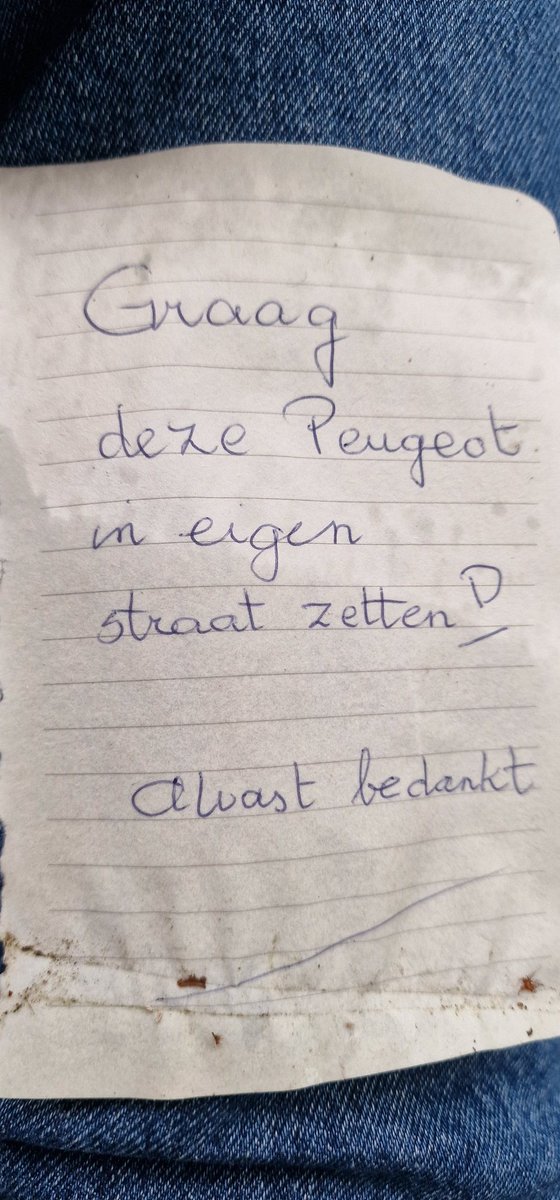 Graag
deze Peugeot.
in eigen
straat zetten
Alvast bedankt